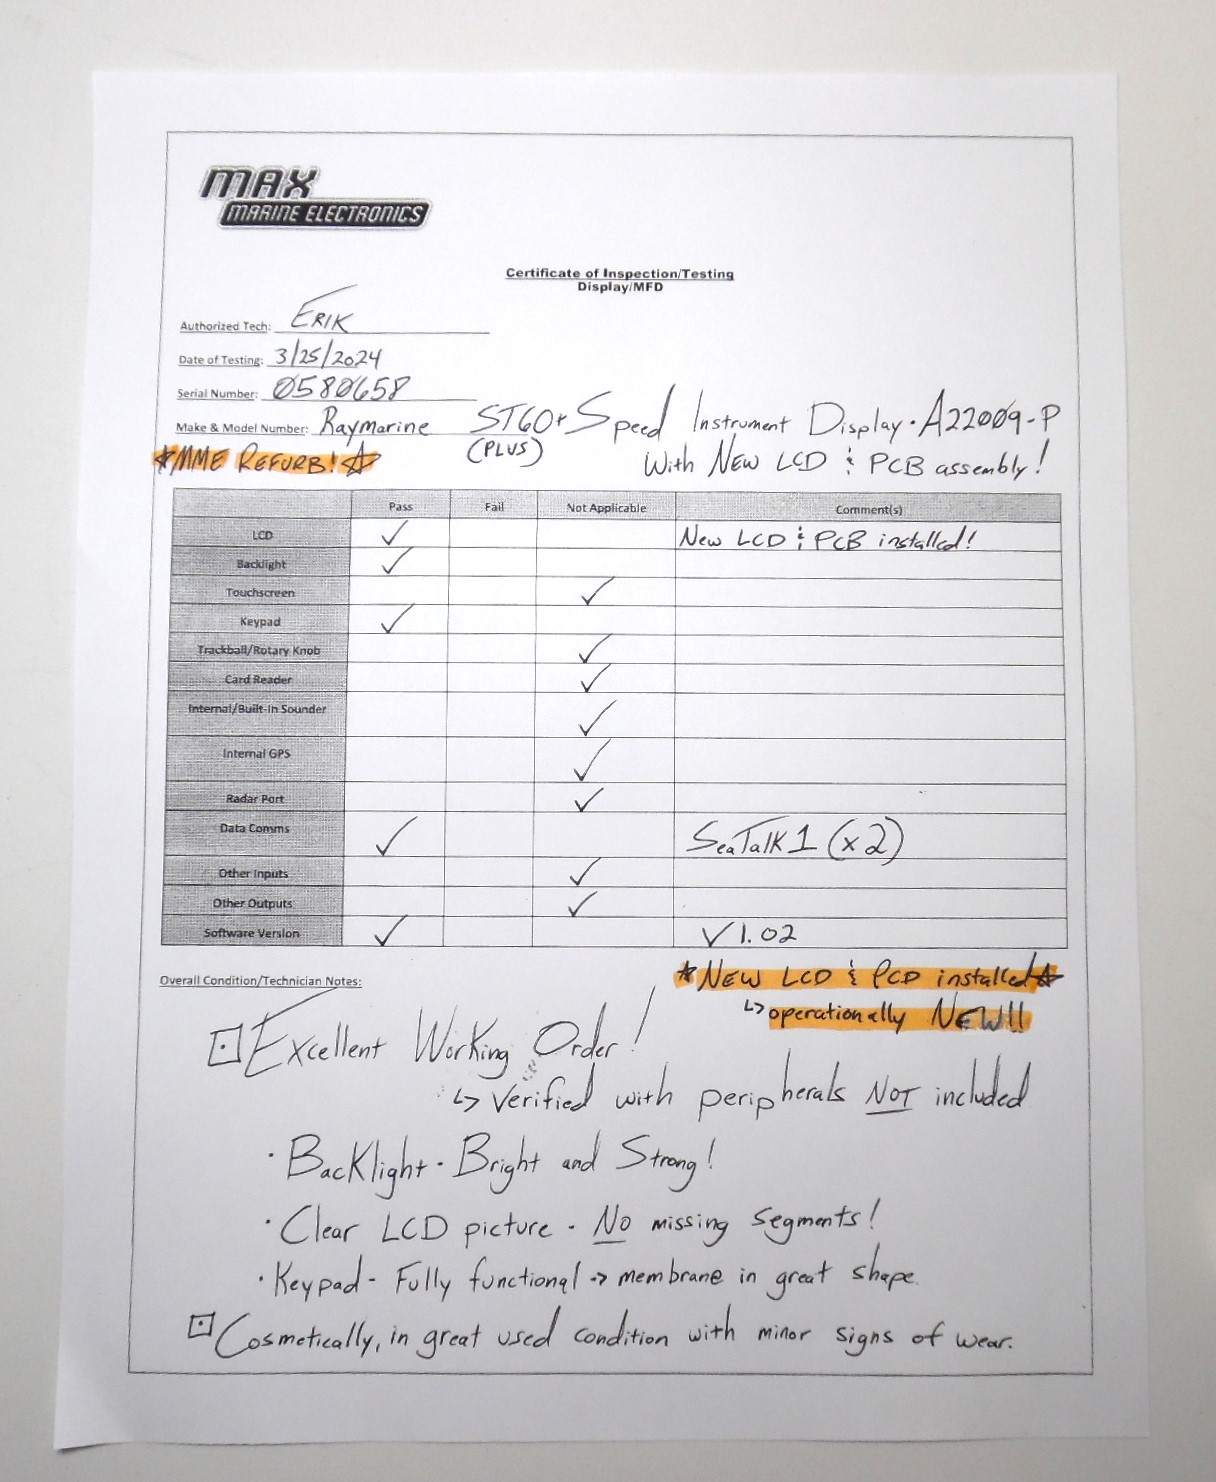 MAX
MARINE ELECTRONICS
Certificate of Inspection/Testing
Display/MFD
Authorized Tech: ERIK
Date of Testing: 3/25/2024
Serial Number: 0580658
Make & Model Number: Raymarine ST60+ Speed Instrument Display · A22009-P
(PLUS)
★MME REFURB!★ With NEW LCD & PCB assembly!
Pass Fail Not Applicable Comment(s)
LCD ✓ New LCD & PCB installed!
Backlight ✓
Touchscreen ✓
Keypad ✓
Trackball/Rotary Knob ✓
Card Reader ✓
Internal/Built-In Sounder ✓
Internal GPS ✓
Radar Port ✓
Data Comms ✓ SeaTalk1 (x2)
Other Inputs ✓
Other Outputs ✓
Software Version ✓ V1.02
Overall Condition/Technician Notes: ★NEW LCD & PCD installed★
↳ operationally NEW!!
⊡ Excellent Working Order!
↳ Verified with peripherals NOT included
· Backlight · Bright and Strong!
· Clear LCD picture - No missing segments!
· Keypad - Fully functional -> membrane in great shape.
⊡ Cosmetically, in great used condition with minor signs of wear.